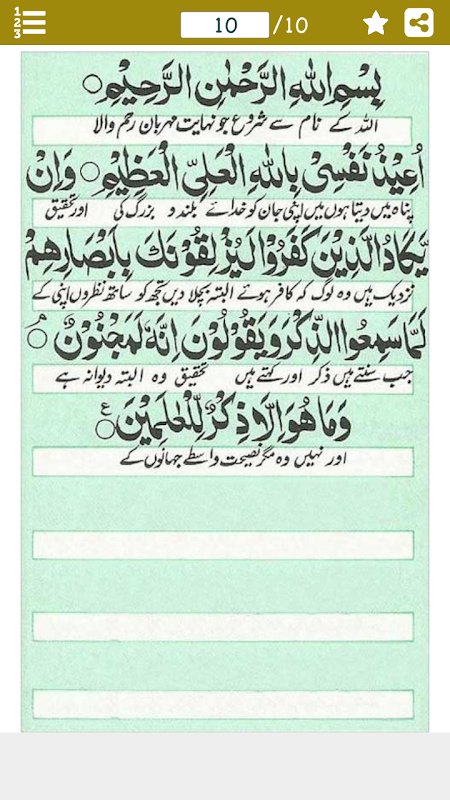 1
2
3
10 /10
بِسْمِ اللهِ الرَّحْمٰنِ الرَّحِيْمِ ○
اللہ کے نام سے شروع جو نہایت مہربان رحم والا
اُعِيْذُ نَفْسِىْ بِاللهِ الْعَلِىِّ الْعَظِيْمِ ○ وَاِنْ
پناہ میں دیتا ہوں میں اپنی جان کو خدائے بلند و بزرگ کی اور تحقیق
يَّكَادُ الَّذِيْنَ كَفَرُوْا لَيُزْلِقُوْنَكَ بِاَبْصَارِهِمْ
نزدیک ہیں وہ لوگ کہ کافر ہوئے البتہ بچلا دیں تجھ کو ساتھ نظروں اپنی کے
لَمَّا سَمِعُوا الذِّكْرَ وَيَقُوْلُوْنَ اِنَّهٗ لَمَجْنُوْنٌ ○ۘ
جب سنتے ہیں ذکر اور کہتے ہیں تحقیق وہ البتہ دیوانہ ہے
وَمَا هُوَ اِلَّا ذِكْرٌ لِّلْعٰلَمِيْنَ ○ ع
اور نہیں وہ مگر نصیحت واسطے جہانوں کے